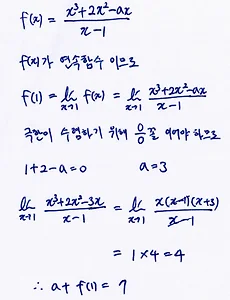 f(x) = x³+2x²-ax / x-1
f(x)가 연속함수 이므로
f(1) = lim x→1 f(x) = lim x→1 x³+2x²-ax / x-1
극한이 수렴하기 위해 0/0꼴 이어야 하므로
1+2-a=0 a=3
lim x→1 x³+2x²-3x / x-1 = lim x→1 x(x-1)(x+3) / x-1
= 1×4=4
∴ a+f(1) = 7